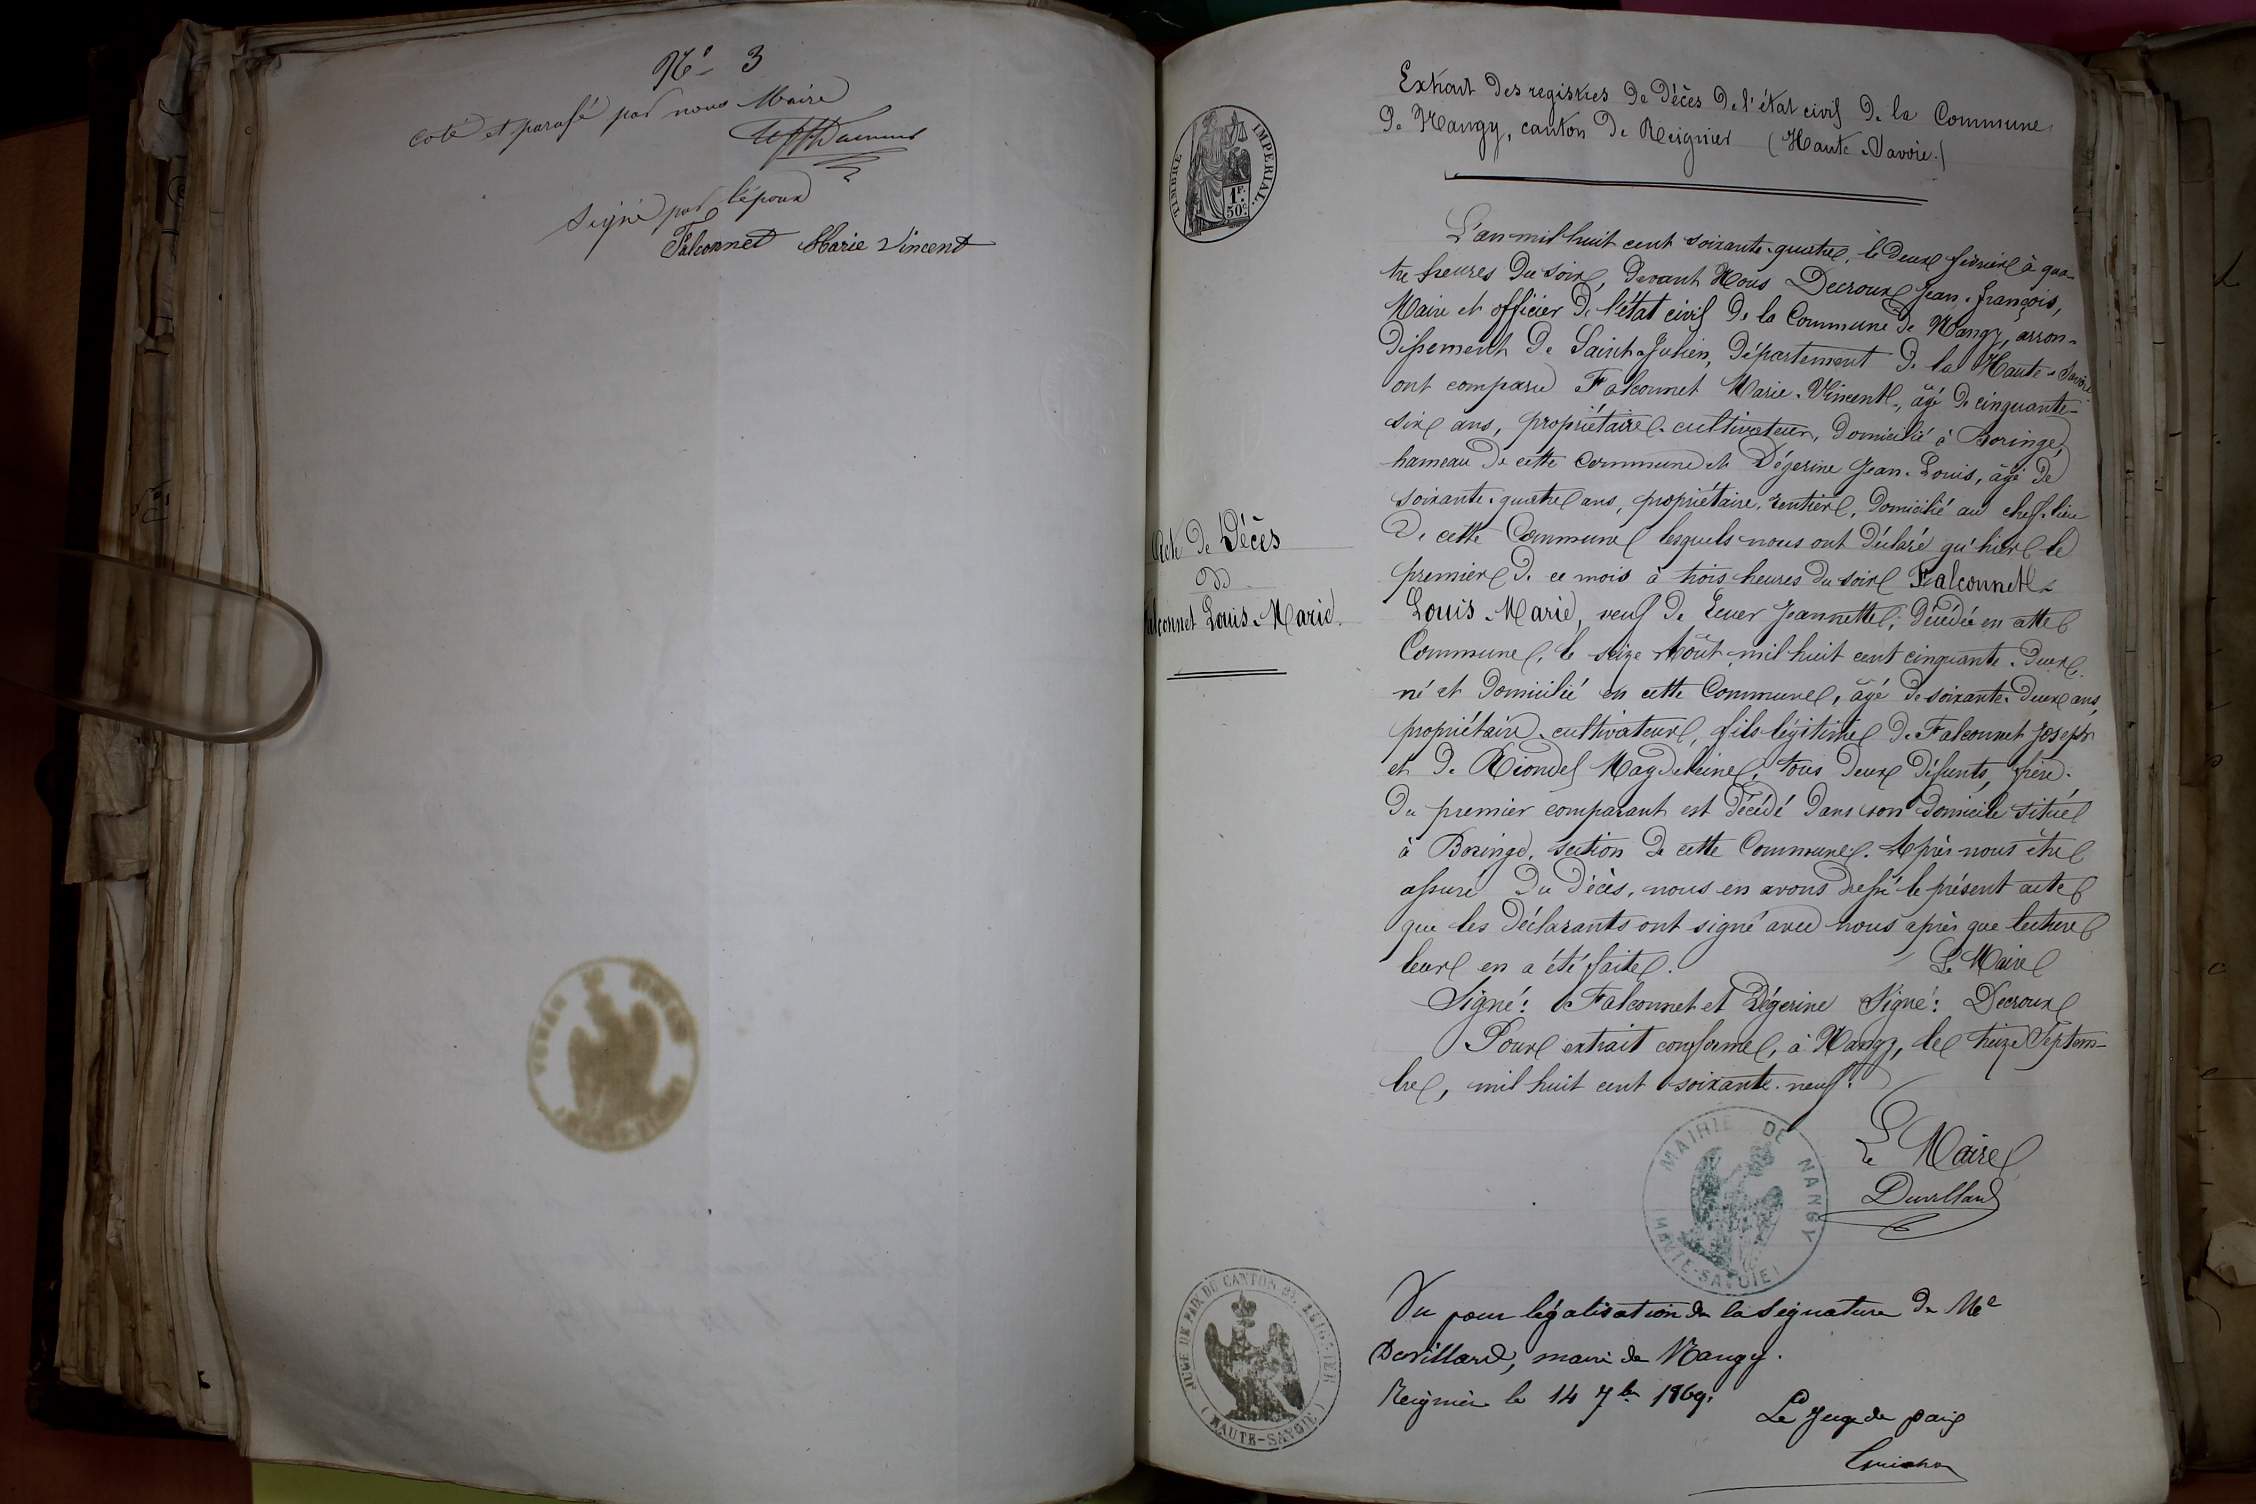 No 3
coté et parafé par nous Maire
signé par l'époux
Falconnet Marie Vincent
TIMBRE IMPERIAL.
1F.
50c
Extrait des registres de décès de l'état civil de la Commune
de Nangy, canton de Reignier (Haute-Savoie.)
L'an mil huit cent soixante-quatre, le deux février à qua-
tre heures du soir, devant Nous Decroux Jean-François,
Maire et officier de l'état civil de la Commune de Nangy, arron-
dissement de Saint-Julien, département de la Haute-Savoie
ont comparu Falconnet Marie-Vincent, âgé de cinquante-
six ans, propriétaire-cultivateur, domicilié à Boringe,
hameau de cette Commune et Dégerine Jean-Louis, âgé de
soixante-quatre ans, propriétaire-rentier, domicilié au chef-lieu
de cette Commune lesquels nous ont déclaré qu'hier le
premier de ce mois à trois heures du soir Falconnet
Acte de Décès
de
Falconnet Louis-Marie.
Louis-Marie, veuf de Jeannette, décédée en cette
Commune, le seize Août mil huit cent cinquante-deux,
né et domicilié en cette Commune, âgé de soixante-deux ans,
propriétaire-cultivateur, fils légitime de Falconnet Joseph
et de Riondel Magdeleine, tous deux défunts, frère
du premier comparant est décédé dans son domicile situé
à Boringe, section de cette Commune. Après nous être
assuré du décès, nous en avons dressé le présent acte
que les déclarants ont signé avec nous après que lecture
leur en a été faite. Le Maire
Signé: Falconnet et Dégerine Signé: Decroux
Pour extrait conforme, à Nangy, le treize Septem-
bre, mil huit cent soixante-neuf.
MAIRIE DE NANGY
(HAUTE-SAVOIE)
Le Maire
Duvillard
JUGE DE PAIX DU CANTON DE REIGNIER
(HAUTE-SAVOIE)
Vu pour légalisation de la signature de Me
Duvillard, maire de Nangy.
Reignier le 14 7bre 1869.
Le Juge de paix